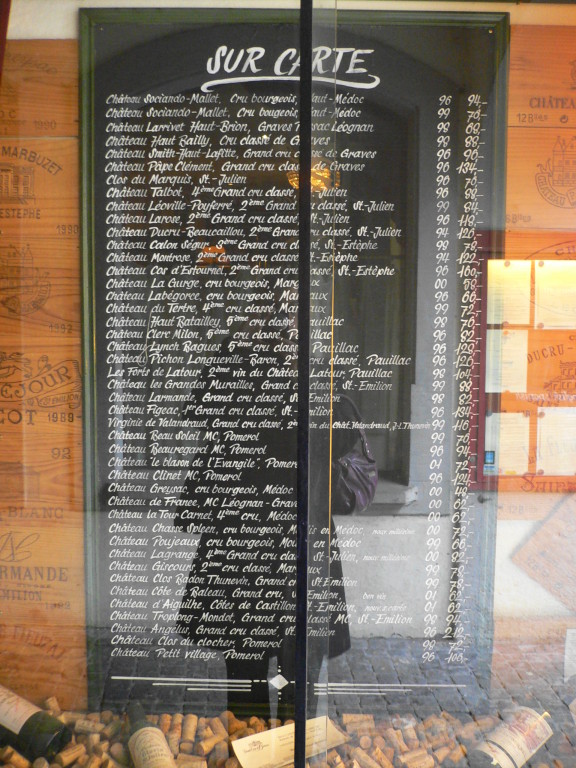 SUR CARTE
Château Sociando-Mallet, Cru bourgeois, Haut-Médoc 96 94,-
Château Sociando-Mallet, Cru bougeois, Haut-Médoc 99 70,-
Château Larrivet Haut-Brion, Graves Pessac Léognan 98 68,-
Château Haut Bailly, Cru classé de Graves 98 88,-
Château Smith-Haut-Lafitte, Grand cru classé de Graves 96 96,-
Château Pâpe Clément, Grand cru classé de Graves 96 134,-
Clos du Marquis, St-Julien 99 70,-
Château Talbot, 4ème Grand cru classé, St-Julien 98 88,-
Château Léoville-Poyferré, 2ème Grand cru classé, St.-Julien 99 84,-
Château Larose, 2ème Grand cru classé, St-Julien 96 118,-
Château Ducru-Beaucaillou, 2ème Grand cru classé, St.-Julien 94 126,-
Château Calon Ségur, 3ème Grand cru classé, St-Estèphe 98 78,-
Château Montrose, 2ème Grand cru classé, St-Estèphe 94 122,-
Château Cos d'Estournel, 2ème Grand cru classé, St.-Estèphe 96 160,-
Château La Gurge, cru bourgeois, Margaux 00 58,-
Château Labégorce, cru bourgeois, Margaux 96 66,-
Château du Tertre, 4ème cru classé, Margaux 99 72,-
Château Haut Batailley, 5ème cru classé, Pauillac 98 76,-
Château Clerc Milon, 5ème cru classé, Pauillac 96 82,-
Château Lynch Bagues, 5ème cru classé Pauillac 96 128,-
Château Pichon Longueville-Baron, 2ème cru classé, Pauillac 96 126,-
Les Forts de Latour, 2ème vin du Château Latour, Pauillac 98 104,-
Château les Grandes Murailles, Grand cru classé, St-Emilion 99 88,-
Château Larmande, Grand cru classé, St-Emilion 98 82,-
Château Figeac, 1er Grand cru classé, St.-Emilion 96 134,-
Virginie de Valandraud, Grand cru classé, 2ème vin du Chât. Valandraud, J-L Thunevin 99 116,-
Château Beau Soleil MC, Pomerol 99 70,-
Château Beauregard MC, Pomerol 96 94,-
Château "le blason de l'Evangile", Pomerol 01 72,-
Château Clinet MC, Pomerol 96 124,-
Château Greysac, cru bourgeois, Médoc 00 48,-
Château de France, MC Léognan-Graves 00 62,-
Château la Tour Carnet, 4ème cru, Médoc 00 62,-
Château Chasse Spleen, cru bourgeois, Moulis en Médoc, 00 72,-
Château Poujeaux, cru bourgeois, Moulis en Médoc 99 66,-
Château Lagrange, 4ème Grand cru classé, St-Julien, 00 82,-
Château Giscours, 2ème cru classé, Margaux 99 78,-
Château Clos Badon Thunevin, Grand cru St-Emilion 99 78,-
Château Côte de Baleau, Grand cru, St-Emilion, 01 62,-
Château d'Aiguilhe, Côtes de Castillon St-Emilion, 01 62,-
Château Troplong-Mondot, Grand cru classé MC, St-Emilion 99 94,-
Château Angelus, Grand cru classé, St-Emilion 96 212,-
Château Clos du clocher, Pomerol 99 72,-
Château Petit village, Pomerol 96 108,-